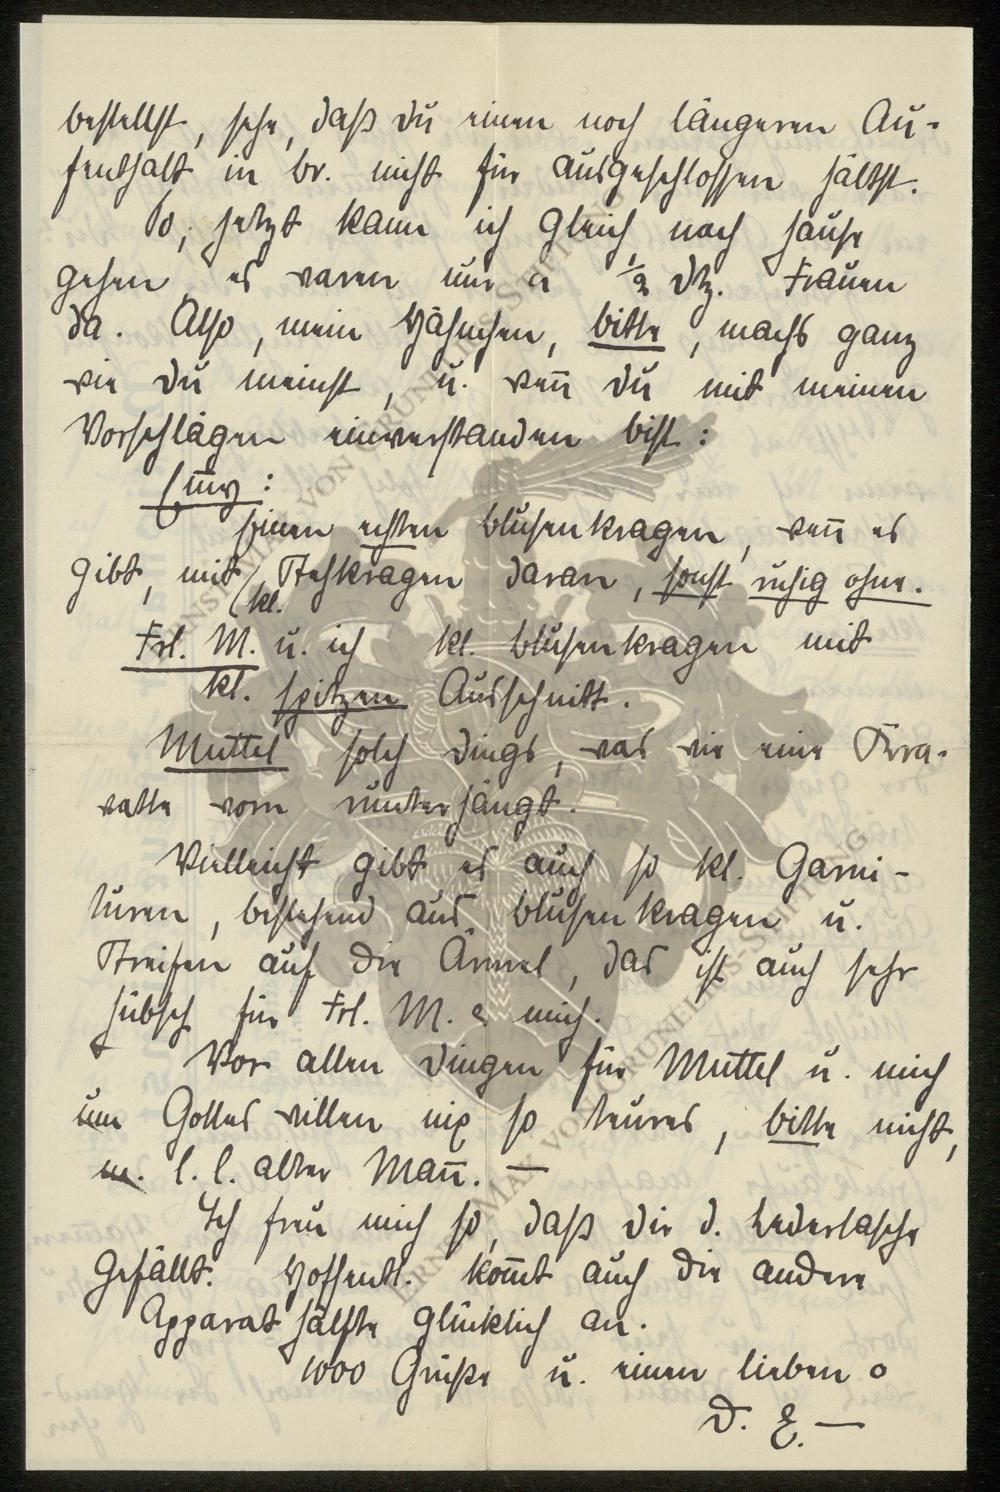 bestellst, sehe, daß Du einen noch längeren Au-
fenthalt in Br. nicht für ausgeschlossen hältst.
So, jetzt kann ich gleich nach Hause
gehen, es waren nur a ½ Dtz. Frauen
da. Also, mein Hähnchen, bitte, machs ganz
wie Du meinst, u. wen̅ Du mit meinen
Vorschlägen einverstanden bist:
Em̅y:
Einen echten Blusenkragen, wen̅ es
gibt, mit kl. Stehkragen daran, sonst ruhig ohne.
Frl. M. u. ich kl. Blusenkragen mit
kl. spitzen Ausschnitt.
Muttel solch Dings, was wie eine Kra-
vatte vorn runterhängt.
Vielleicht gibt es auch so kl. Garni-
turen, bestehend aus Blusenkragen u.
Streifen auf die Ärmel, das ist auch sehr
hübsch für Frl. M. & mich.
Vor allen Dingen für Muttel u. mich
um Gottes willen nix so teures, bitte nicht,
m. l. l. alter Man̅. —
Ich freu mich so, daß Dir d. Ledertasche
gefällt. Hoffentl. kom̅t auch die andere
Apparathälfte glücklich an.
1000 Grüße u. einen lieben o
D. E. —
ERNST MAX VON GRUNELIUS-STIFTUNG
ERNST MAX VON GRUNELIUS-STIFTUNG